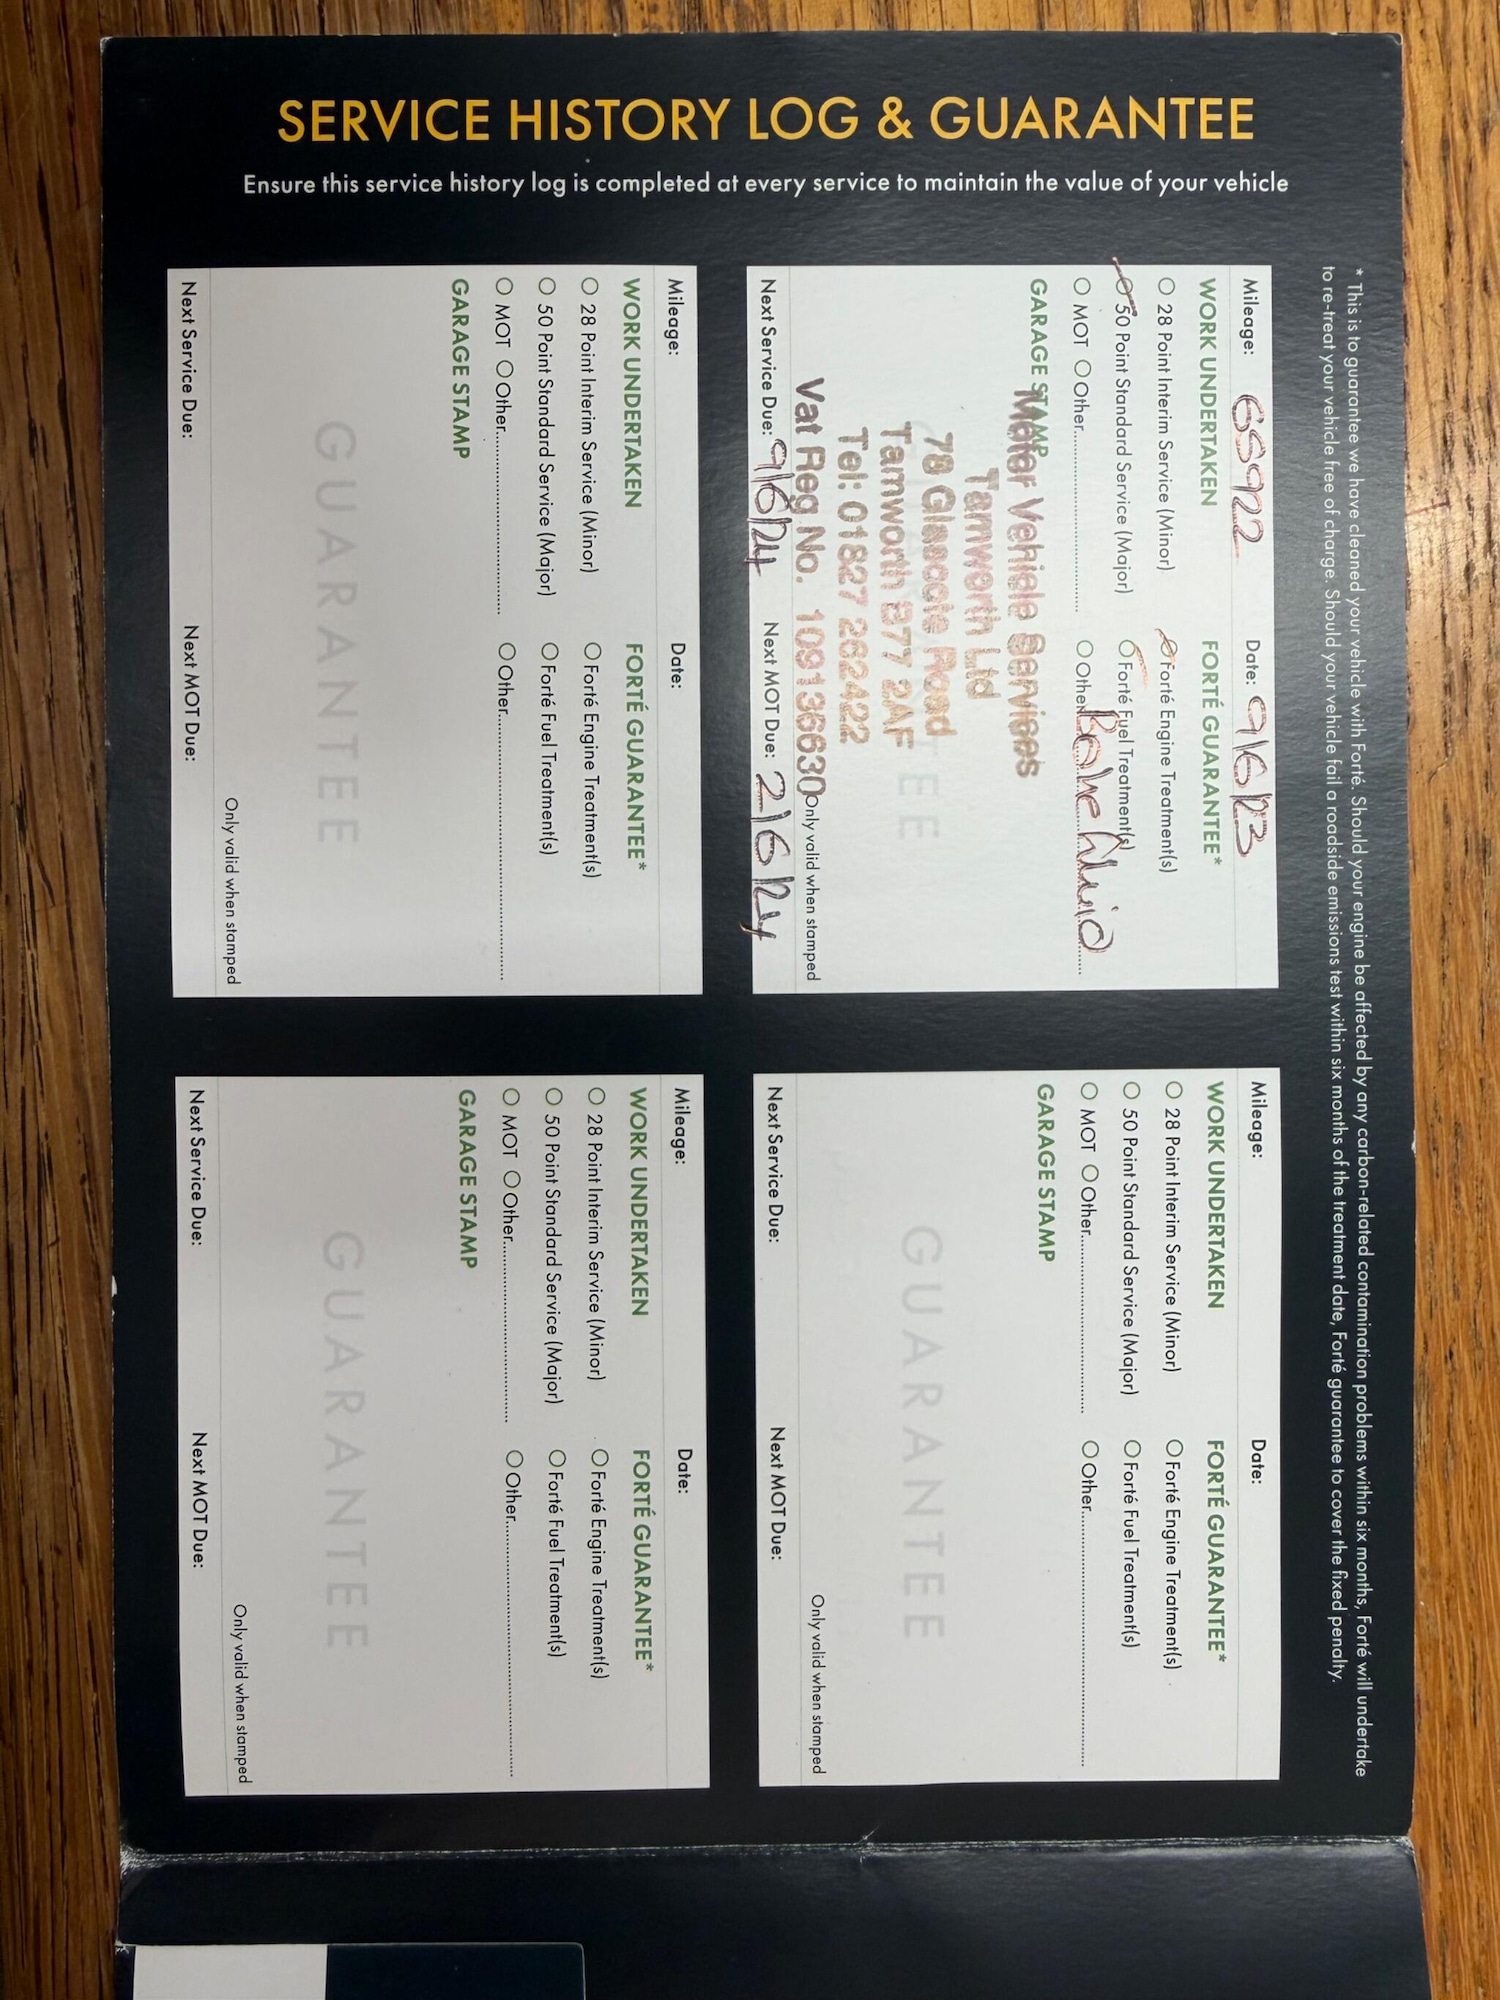 SERVICE HISTORY LOG & GUARANTEE
Ensure this service history log is completed at every service to maintain the value of your vehicle
* This is to guarantee we have cleaned your vehicle with Forté. Should your engine be affected by any carbon-related contamination problems within six months, Forté will undertake
to re-treat your vehicle free of charge. Should your vehicle fail a roadside emissions test within six months of the treatment date, Forté guarantee to cover the fixed penalty.
Mileage: 65922 Date: 9/6/23
WORK UNDERTAKEN FORTÉ GUARANTEE*
28 Point Interim Service (Minor) Forté Engine Treatment(s)
50 Point Standard Service (Major) Forté Fuel Treatment(s)
MOT Other Other Brake fluid
GARAGE STAMP
Motor Vehicle Services
Tamworth Ltd
78 Glascote Road
Tamworth B77 2AF
Tel: 01827 262422
Vat Reg No. 109136630
Only valid when stamped
Next Service Due: 9/6/24 Next MOT Due: 2/6/24
Mileage: Date:
WORK UNDERTAKEN FORTÉ GUARANTEE*
28 Point Interim Service (Minor) Forté Engine Treatment(s)
50 Point Standard Service (Major) Forté Fuel Treatment(s)
MOT Other Other
GARAGE STAMP
GUARANTEE
Only valid when stamped
Next Service Due: Next MOT Due:
Mileage: Date:
WORK UNDERTAKEN FORTÉ GUARANTEE*
28 Point Interim Service (Minor) Forté Engine Treatment(s)
50 Point Standard Service (Major) Forté Fuel Treatment(s)
MOT Other Other
GARAGE STAMP
GUARANTEE
Only valid when stamped
Next Service Due: Next MOT Due:
Mileage: Date:
WORK UNDERTAKEN FORTÉ GUARANTEE*
28 Point Interim Service (Minor) Forté Engine Treatment(s)
50 Point Standard Service (Major) Forté Fuel Treatment(s)
MOT Other Other
GARAGE STAMP
GUARANTEE
Only valid when stamped
Next Service Due: Next MOT Due: